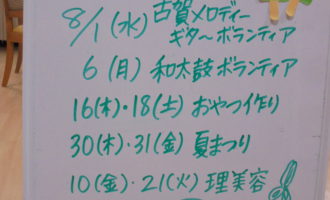 8/1(水) 古賀メロディー
ギターボランティア
6(月) 和太鼓ボランティア
16(木)・18(土) おやつ作り
30(木)・31(金) 夏まつり
10(金)・21(火) 理美容